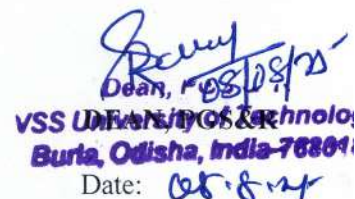 Dean, P
08/08/25
VSS University of Technolog
DEAN, PGS&R
Burla, Odisha, India-768018
Date: 08.8.25